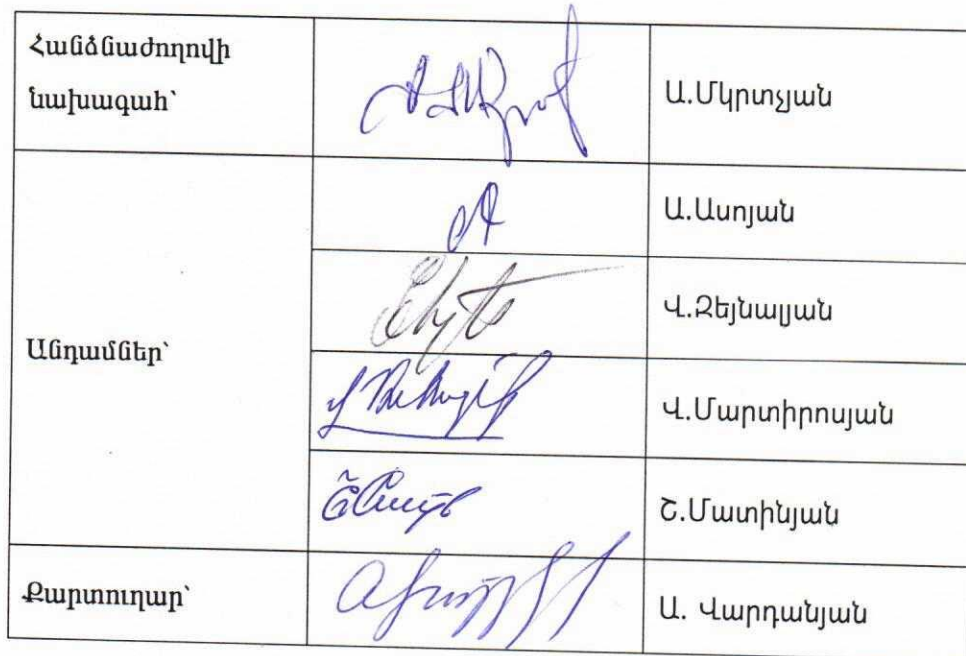 Հանձնաժողովի
նախագահ՝
Ա.Մկրտչյան
Ա.Ասոյան
Անդամներ՝
Վ.Զեյնալյան
Վ.Մարտիրոսյան
Շ.Մատինյան
Քարտուղար՝
Ա. Վարդանյան